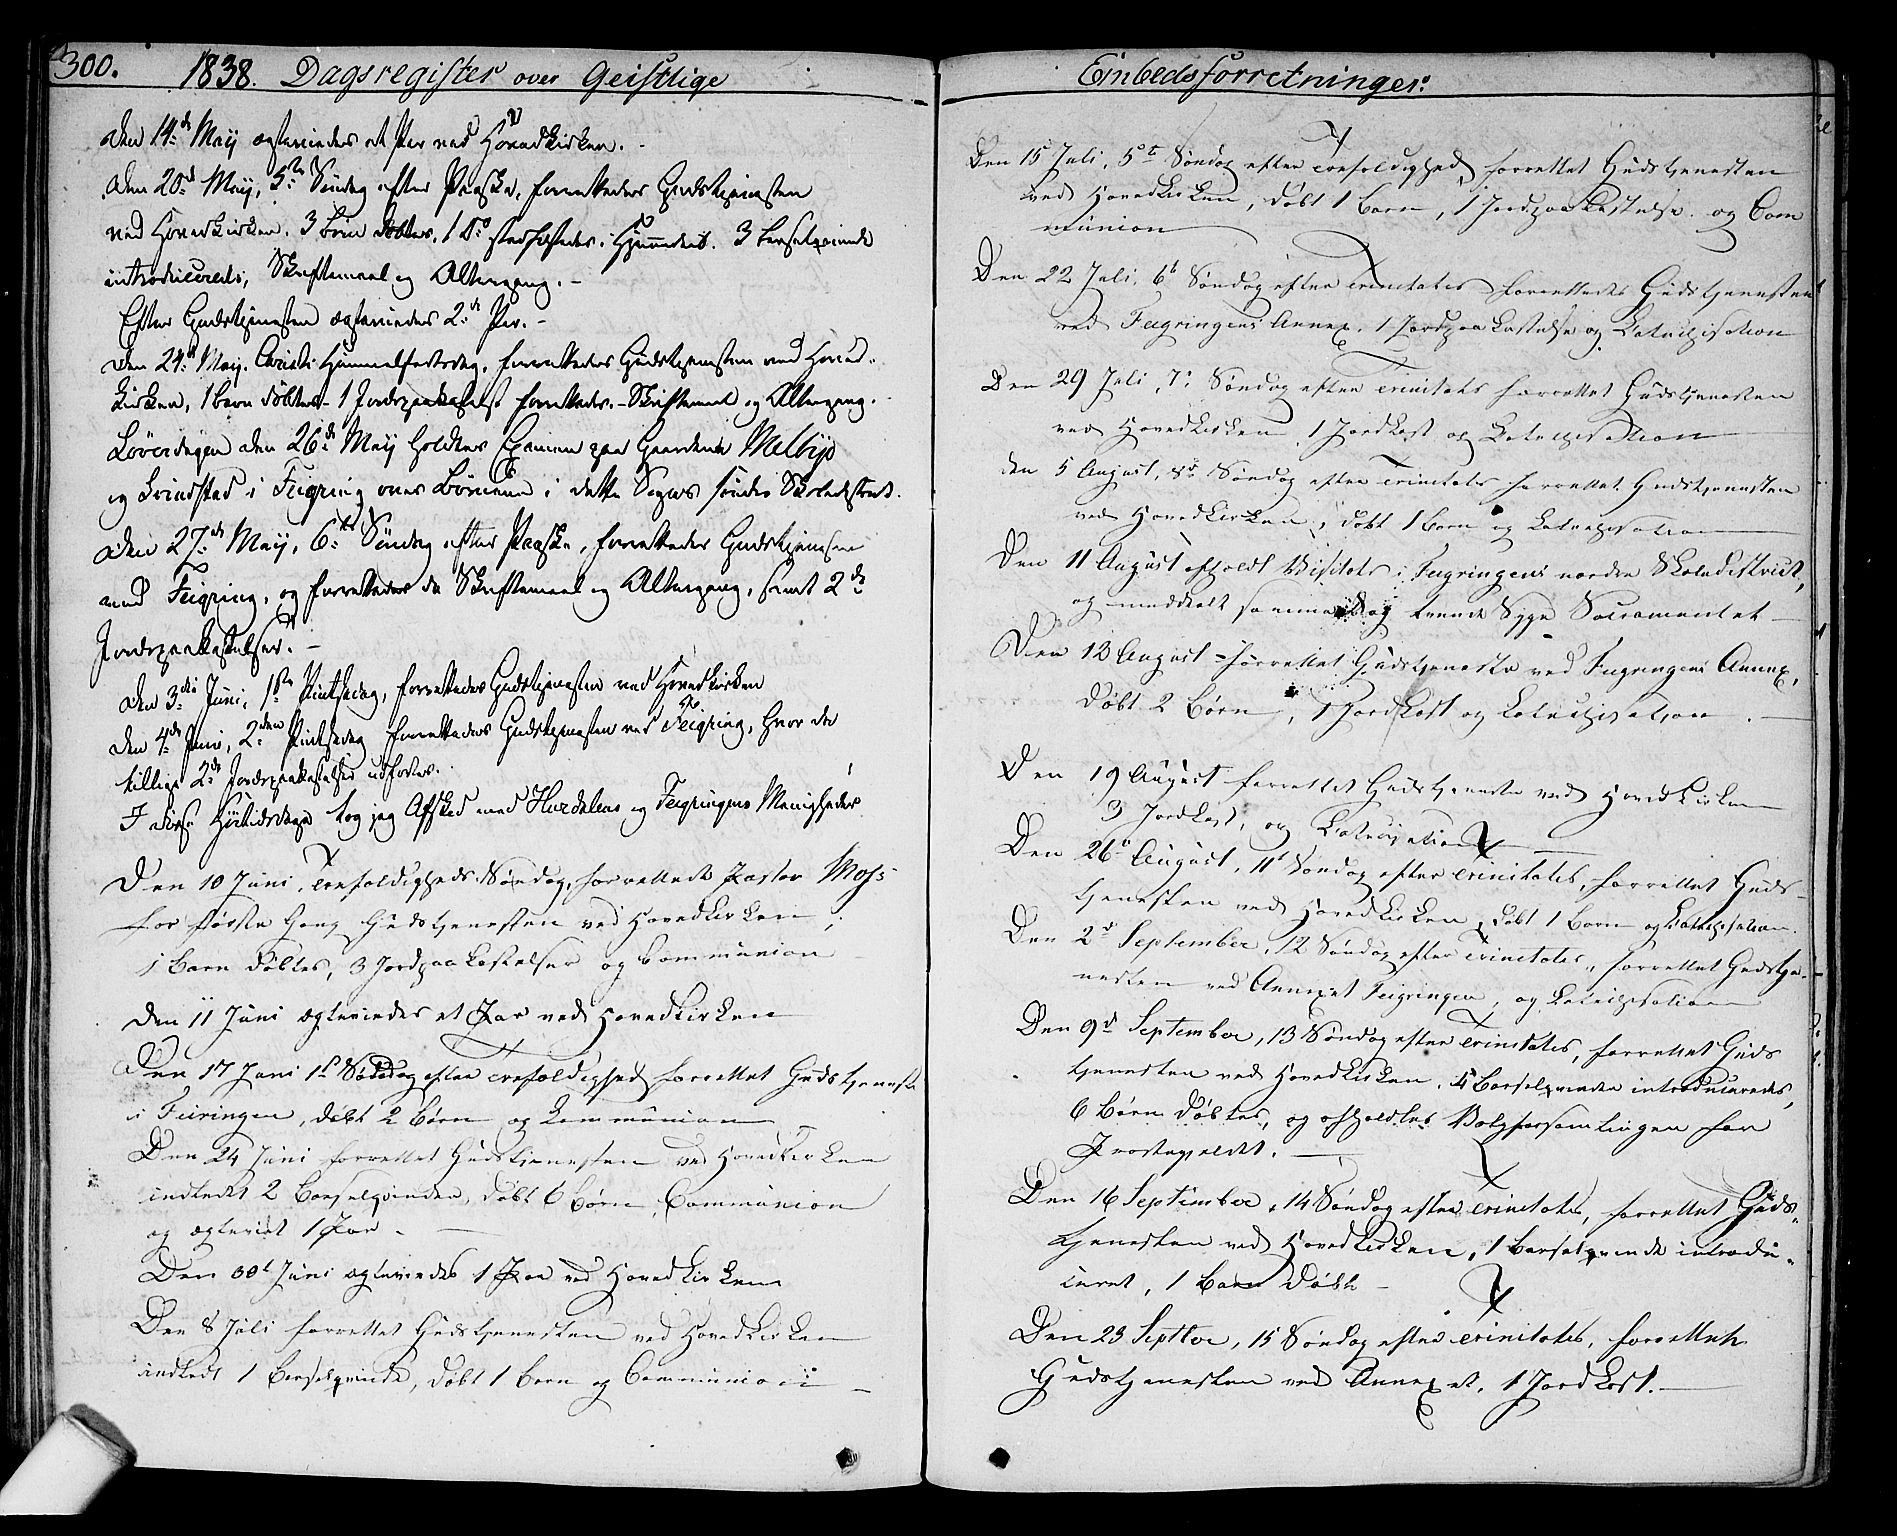 300. 1838. Dagsregister over Geistlige
den 14.de Maij ægteviedes et Par ved Hovedkirken. -
den 20.de Maij, 5.te Søndag efter Paaske, forrettedes Gudstjenesten
ved Hovedkirken. 3 børn døbtes, 1 D.o stadfæstedes i Hjemmedaab. 3 barselqvinde
introduceredes, Skriftemaal og Altergang. -
Efter Gudstjenesten ægteviedes 2.de Par. -
den 24.de Maij. Christi Himmelfartsdag, forrettedes Gudstjenesten ved Hoved-
kirken, 1 barn døbtes - 1 Jordpaakastelse forrettedes. - Skriftemaal og Altergang.
Løverdagen den 26.de Maij holdtes Examen paa Gaardene Melbye
og Svindstad i Feigring over Børnene i dette Sogns søndre Skoledistrict.
den 27.de Maij, 6.te Søndag efter Paaske, forrettedes Gudstjenesten
ved Feigring, og forrettedes da Skriftemaal og Altergang, samt 2.de
Jordpaakastelser. -
den 3.die Juni, 1.ste Pintsedag, forrettedes Gudstjenesten ved Hovedkirken
den 4.de Juni, 2.den Pintsedag forrettedes Gudstjenesten ved Feigring, hvor da
tillige 2.de Jordpaakastelser udførtes.
I disse Høitidsdage tog jeg Afsked med Hurdalens og Feigringens Menigheder
Den 10 Juni, Trefoldigheds Søndag, forrettede Pastor Moss
for første Gang Gudstjenesten ved Hovedkirken;
1 Barn døbtes, 3 Jordpaakastelser og Communion
Den 11 Juni ægteviedes et Par ved Hovedkirken
Den 17 Juni 1st Søndag efter Trefoldighed forrettet Gudstjeneste
i Feiringen, døbt 2 Børn og Communion
Den 24 Juni forrettet Gudstjenesten ved Hovedkirken
indledet 2 Barselqvinder, døbt 6 Børn, Communion
og ægteviet 1 Par. -
Den 30t Juni ægteviedes 1 Par ved Hovedkirken
Den 8 Juli forrettet Gudstjenesten ved Hovedkirken
indledt 1 Barselqvinde, døbt 1 Barn og Communion -
Embedsforretninger.
Den 15 Juli, 5te Søndag efter Trefoldighed, forrettet Gudstjenesten
ved Hovedkirken, døbt 1 Barn, 1 Jordpaakastelse og Com
munion
Den 22 Juli, 6t Søndag efter Trinitatis forrettedes Gudstjenesten
ved Feigringens Annex, 1 Jordpaakastelse og Catechisation
Den 29 Juli, 7: Søndag efter Trinitatis forrettet Gudstjenesten
ved Hovedkirken 1 Jordkast og Catechisation
den 5 August, 8de Søndag efter Trinitatis forrettet Gudstjenesten
ved Hovedkirken, døbt 1 Barn og Catechisation
Den 11 August afholdt Visitats i Feigringens nordre Skoledistrict,
og meddelt samme Dag trende Syge Sacramentet -
Den 12 August forrettet Gudstjeneste ved Feigringens Annex,
døbt 2 Børn, 1 Jordkast og Catechisation. -
Den 19 August forrettet Gudstjeneste ved Hovedkirken
3 Jordkast, og Catechisation -
Den 26 August, 11t Søndag efter Trinitatis, forrettet Guds-
tjenesten ved Hovedkirken, døbt 1 Barn og Catechisation.
Den 2d September, 12 Søndag efter Trinitatis, forrettet Gudstje-
nesten ved Annexet Feigringen, og Catechisation
Den 9d September, 13 Søndag efter Trinitatis, forrettet Guds
tjenesten ved Hovedkirken, 4 Barselqvinder introduceredes,
6 Børn døbtes, og afholdtes Valgforsamlingen for
Præstegjeldet. -
Den 16 September, 14 Søndag efter Trinitatis, forrettet Guds-
tjenesten ved Hovedkirken, 1 Barselqvinde introdu-
ceret, 1 Barn døbt -
Den 23 Septbr, 15 Søndag efter Trinitatis, forrettet
Gudstjenesten ved Annexet, 1 Jordkast. -